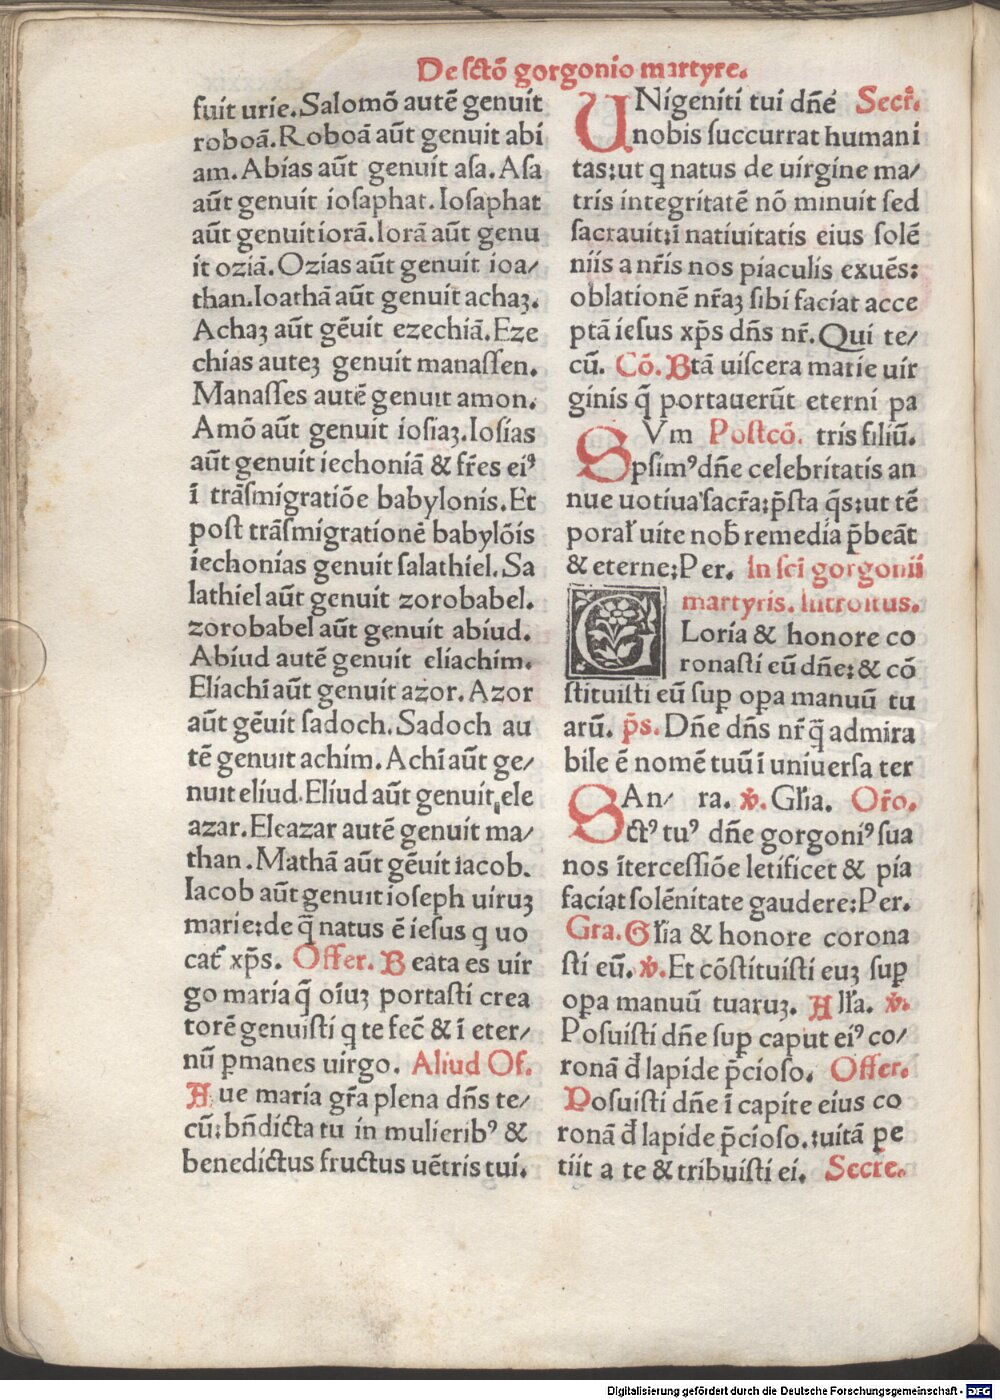 De sctō gorgonio martyre.
fuit urie. Salomō autē genuit
roboā. Roboā aūt genuit abi
am. Abias aūt genuit asa. Asa
aūt genuit iosaphat. Iosaphat
aūt genuit iorā. Iorā aūt genu
it oziā. Ozias aūt genuit ioa/
than. Ioathā aūt genuit achaꝫ.
Achaꝫ aūt gēuit ezechiā. Eze
chias auteꝫ genuit manassen.
Manasses autē genuit amon.
Amō aūt genuit iosiaꝫ. Iosias
aūt genuit iechoniā & fr̄es eiꝰ
ī trāsmigratiōe babylonis. Et
post trāsmigrationē babylōis
iechonias genuit salathiel. Sa
lathiel aūt genuit zorobabel.
zorobabel aūt genuit abiud.
Abiud autē genuit eliachim.
Eliachī aūt genuit azor. Azor
aūt gēuit sadoch. Sadoch au
tē genuit achim. Achī aūt ge/
nuit eliud. Eliud aūt genuit ele
azar. Eleazar autē genuit ma/
than. Mathā aūt gēuit iacob.
Iacob aūt genuit ioseph uiruꝫ
marie: de q̄ natus ē iesus q uo
cat᷑ xp̄s. Offer. Beata es uir
go maria q̄ oīuꝫ portasti crea
torē genuisti q te fec̄ & ī eter/
nū ꝑmanes uirgo. Aliud Of.
Aue maria gr̄a plena dn̄s te/
cū: bn̄dicta tu in mulieribꝰ &
benedictus fructus uētris tui.
UNigeniti tui dn̄e Secr̄.
nobis succurrat humani
tas: ut q natus de uirgine ma/
tris integritatē nō minuit sed
sacrauit: ī natiuitatis eius solē
niis a nr̄is nos piaculis exuēs:
oblationē nr̄aꝫ sibi faciat acce
ptā iesus xp̄s dn̄s nr̄. Qui te/
cū. Cō. Btā uiscera marie uir
ginis q̄ portauerūt eterni pa
SVm Postcō. tris filiū.
psimꝰ dn̄e celebritatis an
nue uotiua sacr̄a: p̄sta q̄s: ut tē
poral᷑ uite nob̄ remedia p̄beāt
& eterne: Per. In sci gorgonii
martyris. Introitus.
GLoria & honore co
ronasti eū dn̄e: & cō
stituisti eū suꝑ oꝑa manuū tu
arū. p̄s. Dn̄e dn̄s nr̄ q̄ admira
bile ē nomē tuū ī uniuersa ter
SAn/ ra. v̄. Gl̄ia. Or̄o.
ctꝰ tuꝰ dn̄e gorgoniꝰ sua
nos ītercessiōe letificet & pia
faciat solēnitate gaudere: Per.
Gra. Gl̄ia & honore corona
sti eū. v̄. Et cōstituisti euꝫ suꝑ
oꝑa manuū tuaruꝫ. All̄a. v̄.
Posuisti dn̄e suꝑ caput eiꝰ co/
ronā đ lapide p̄cioso. Offer.
Posuisti dn̄e ī capite eius co
ronā đ lapide p̄cioso.: uitā pe
tiit a te & tribuisti ei. Secre.
Digitalisierung gefördert durch die Deutsche Forschungsgemeinschaft - DFG